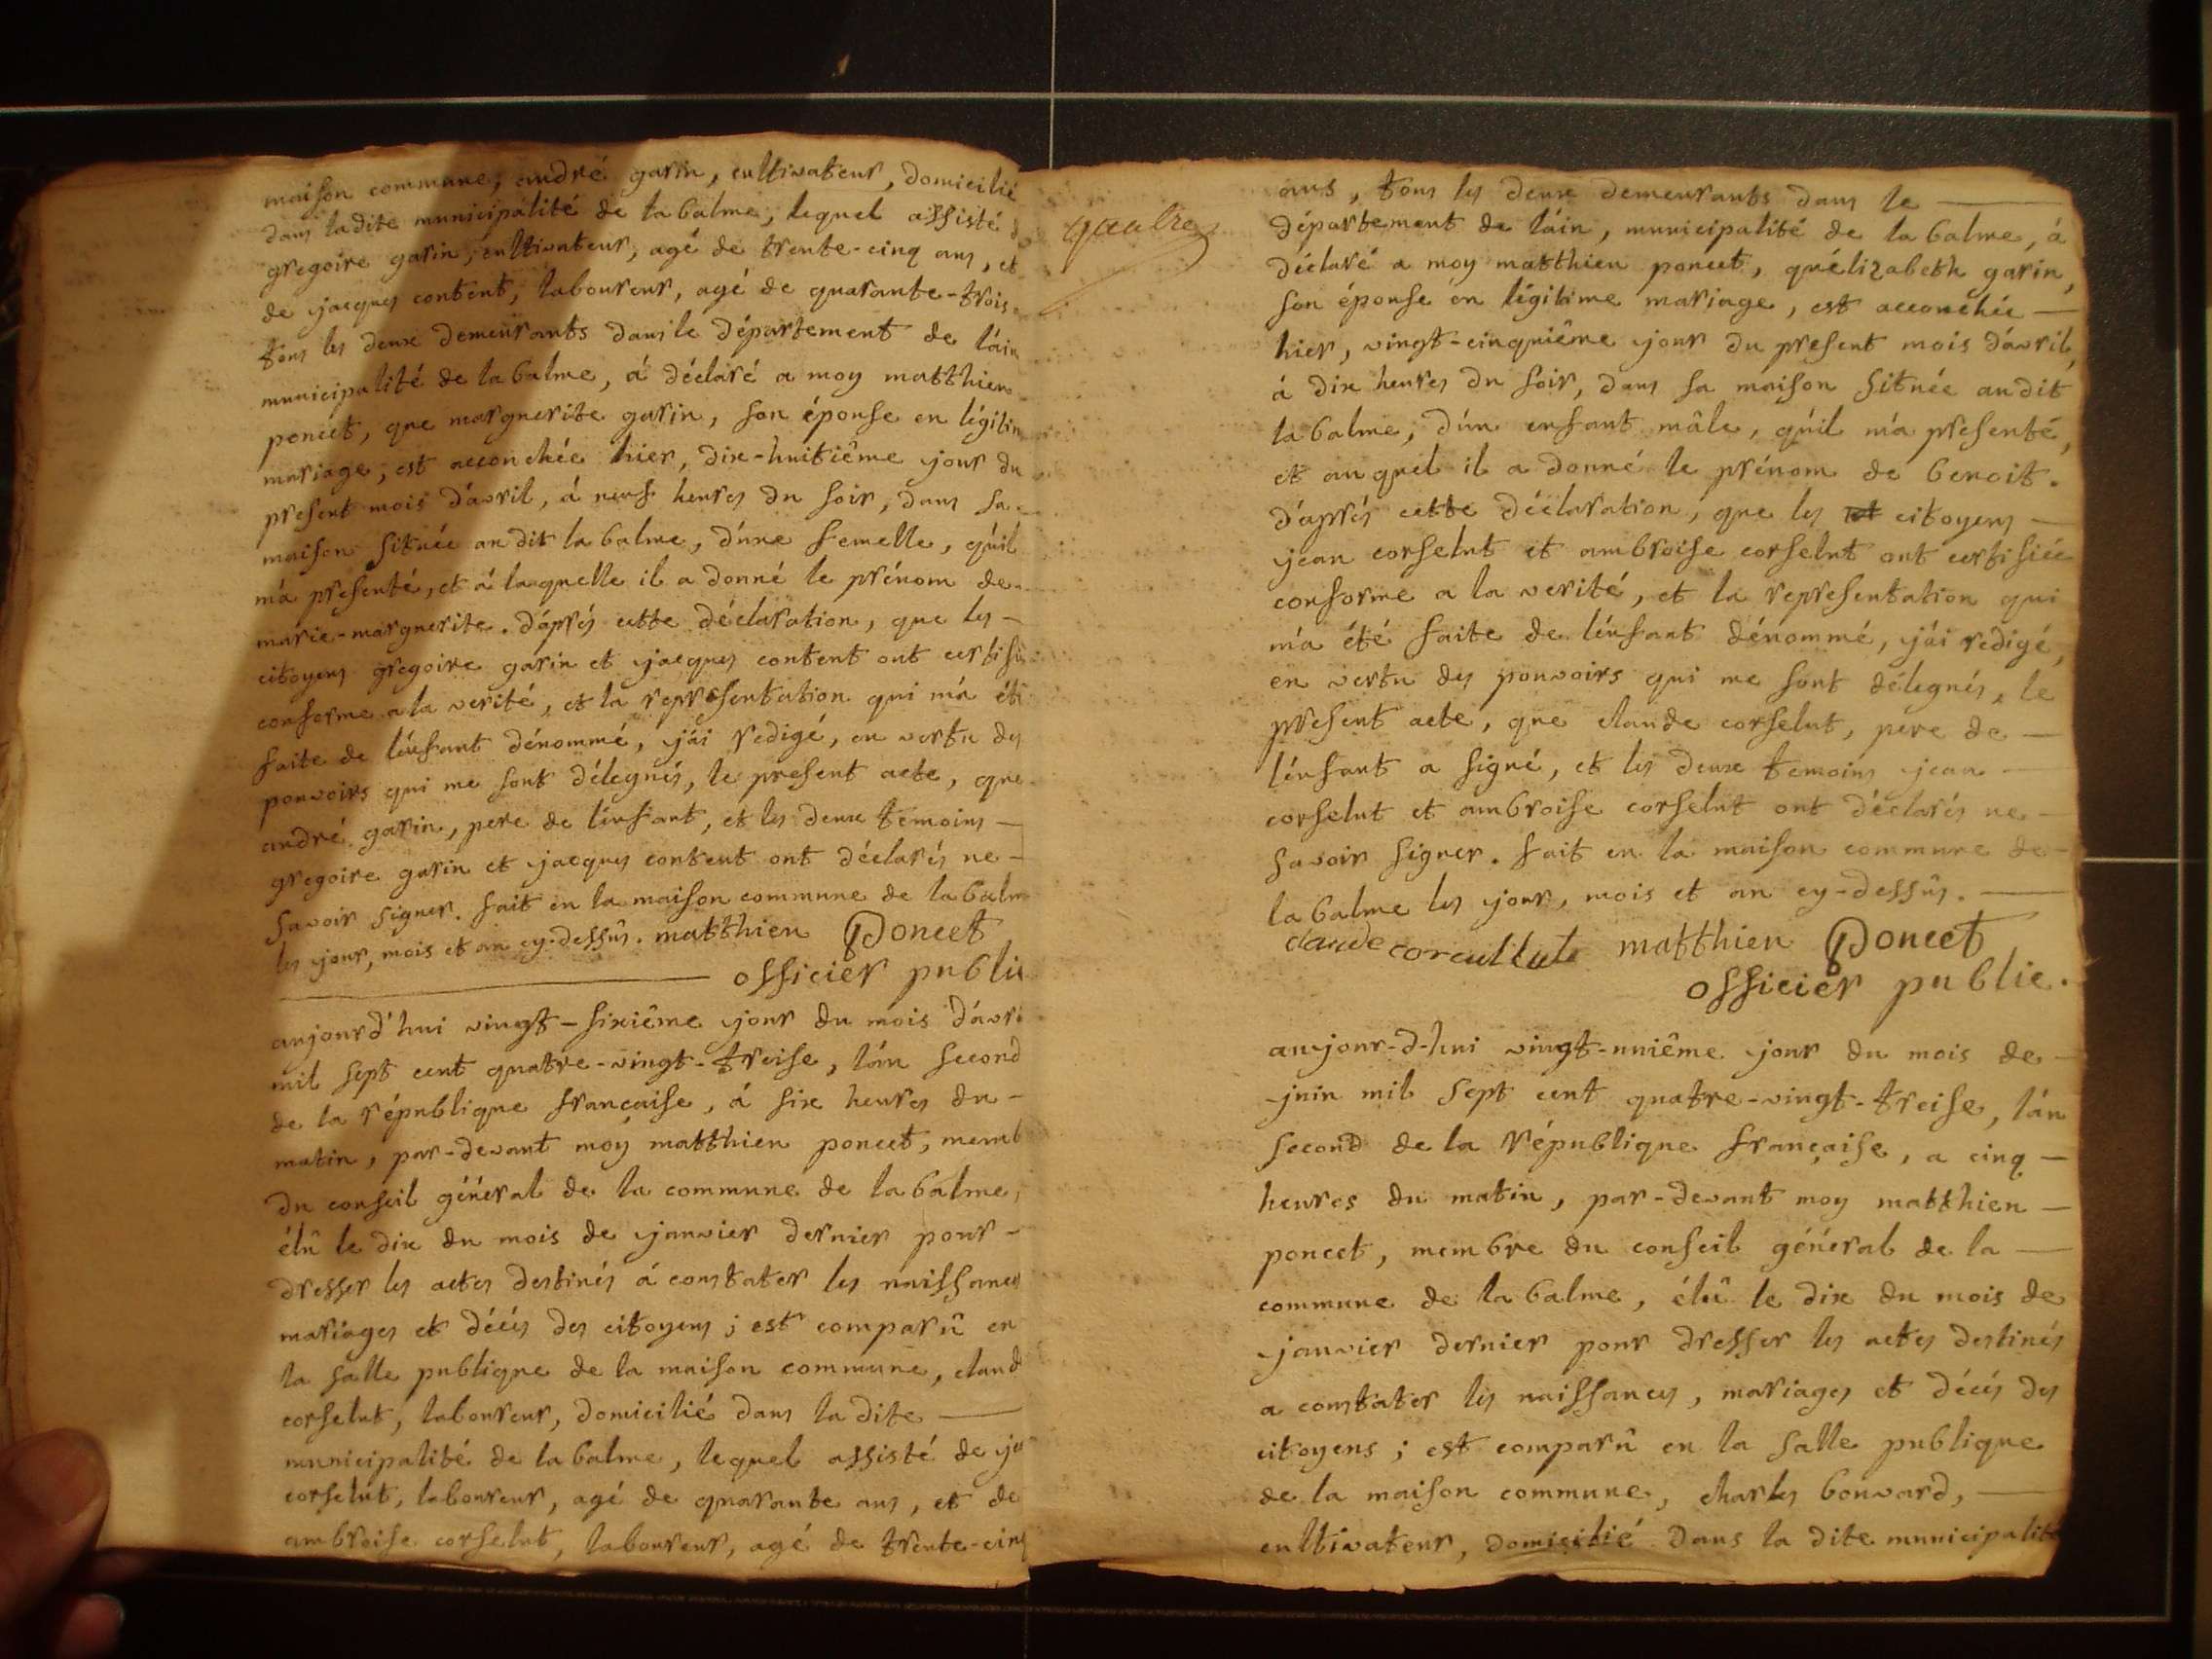 maison commune, andré garin, cultivateur, domicilié
dans ladite municipalité de la balme, lequel assisté d
gregoire garin, cultivateur, agé de trente-cinq ans, et
de jacques content, laboureur, agé de quarante-trois
tous les deux demeurants dans le département de l'áin
municipalité de la balme, á déclaré a moy matthieu
poncet, que marguerite garin, son épouse en légitim
mariage, est accouchée hier, dix-huitiême jour du
present mois d'avril, á neuf heures du soir, dans sa
maison située au dit la balme, d'une femelle, qu'il
m'á presenté, et á laquelle il a donné le prénom de
marie-marguerite. d'aprés cette déclaration, que les -
citoyens gregoire garin et jacques content ont certifié
conforme a la verité, et la representation qui m'a été
faite de l'enfant dénommé, j'ai redigé, en vertu des
pouvoirs qui me sont délegués, le present acte, que
andré garin, pere de l'enfant, et les deux temoins —
gregoire garin et jacques content ont déclarés ne -
savoir signer. fait en la maison commune de la balm
les jour, mois et an cy-dessûs. matthieu Poncet
officier public
aujourd'hui vingt-sixiême jour du mois d'avri
mil sept cent quatre-vingt-treise, l'án second
de la république française, á six heures du -
matin, par-devant moy matthieu poncet, memb
du conseil général de la commune de la balme,
élû le dix du mois de janvier dernier pour -
dresser les actes destinés á constater les naissances
mariages et décés des citoyens ; est comparû en
la salle publique de la maison commune, claud
corselut, laboureur, domicilié dans la dite —
municipalité de la balme, lequel assisté de je
corselut, laboureur, agé de quarante ans, et de
ambroise corselut, laboureur, agé de trente-cinq
quatre
ans, tous les deux demeurants dans le —
département de l'áin, municipalité de la balme, á
déclaré a moy matthieu poncet, qu'élizabeth garin,
son épouse en légitime mariage, est accouchée —
hier, vingt-cinquiême jour du present mois d'avril,
á dix heures du soir, dans sa maison située audit
la balme, d'un enfant mâle, qu'il m'á presenté,
et auquel il a donné le prénom de benoit.
d'aprés cette déclaration, que les citoyens —
jean corselut et ambroise corselut ont certifiée
conforme a la verité, et la representation qui
m'a été faite de l'enfant dénommé, j'ái redigé,
en vertu des pouvoirs qui me sont délegués, le
present acte, que claude corselut, pere de —
l'énfant a signé, et les deux temoins jean —
corselut et ambroise corselut ont déclarés ne -
savoir signer. fait en la maison commune de -
la balme les jour, mois et an cy-dessûs. —
claude matthieu Poncet
officier public.
aujour-d-hui vingt-uniême jour du mois de -
juin mil sept cent quatre-vingt-treise, l'án
second de la République française, a cinq —
heures du matin, par-devant moy matthieu —
poncet, membre du conseil général de la —
commune de la balme, élû le dix du mois de
janvier dernier pour dresser les actes destinés
a constater les naissances, mariages et décés des
citoyens ; est comparû en la salle publique
de la maison commune, charles bonvard, —
cultivateur, domicilié dans la dite municipalité